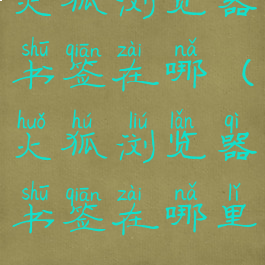 火狐浏览器
shū qiān zài nǎ
书签在哪（
huǒ hú liú lǎn qì
火狐浏览器
shū qiān zài nǎ lǐ
书签在哪里